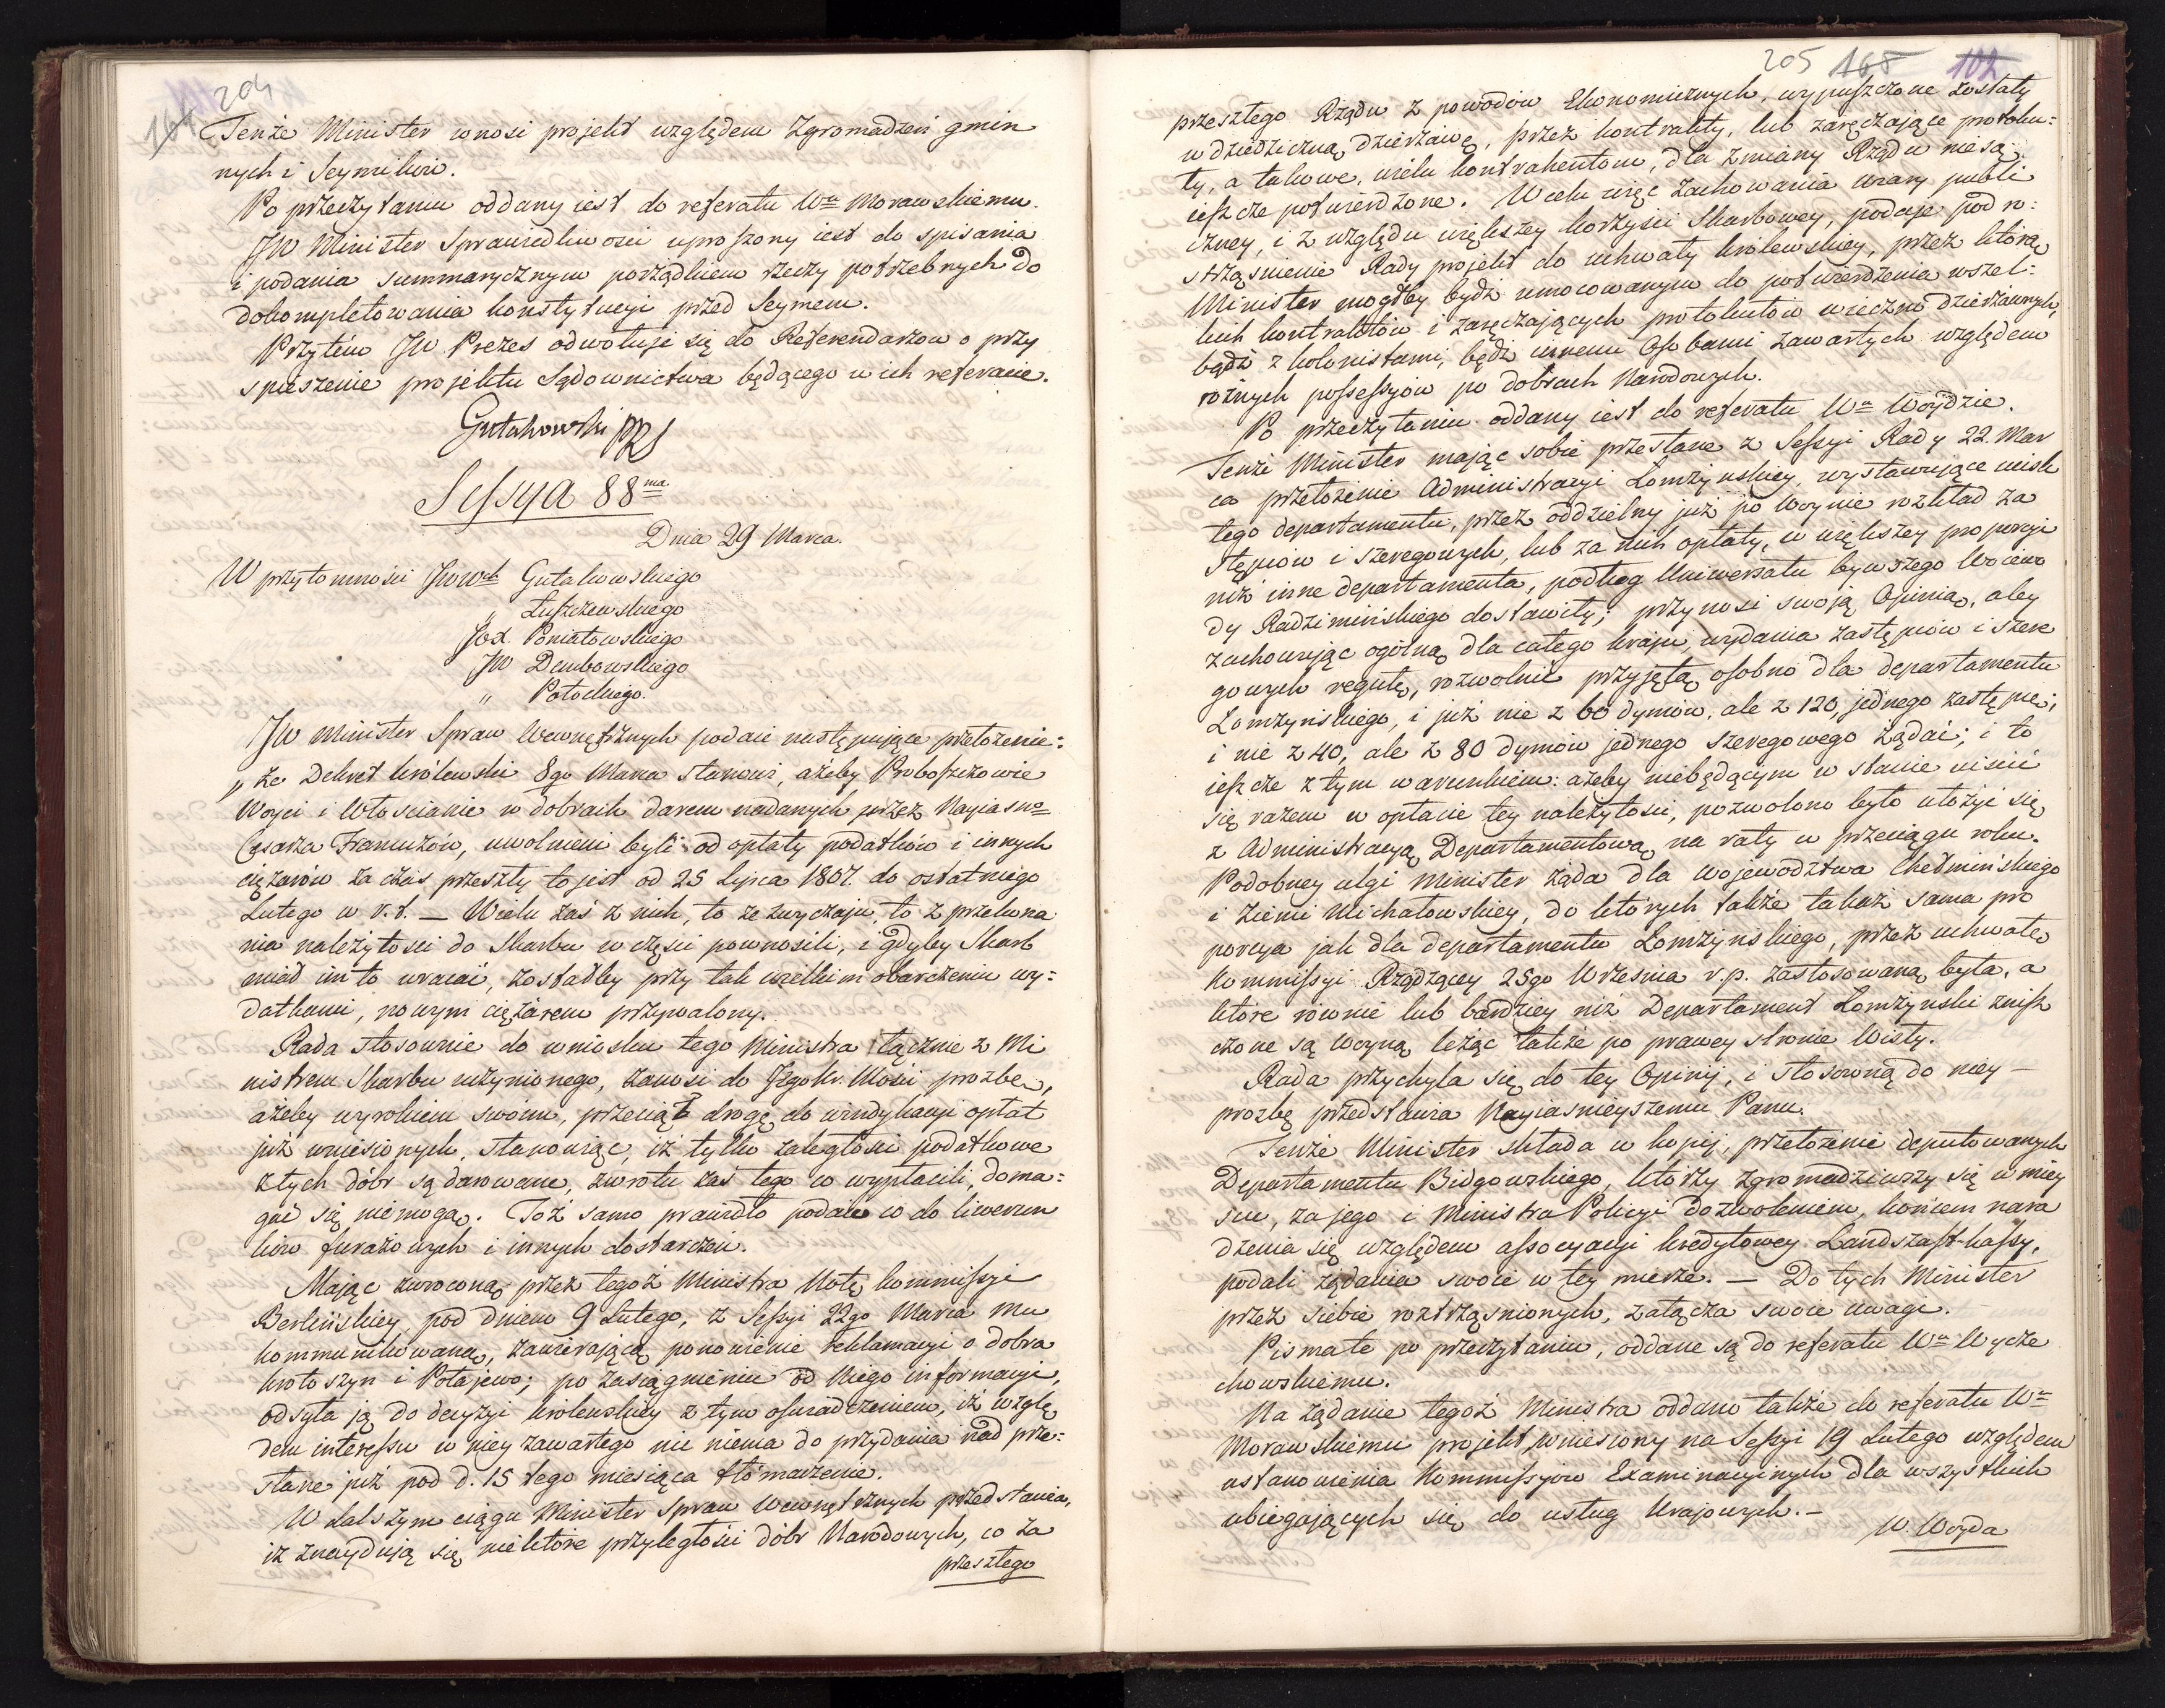 204
164
Tenże Minister wnosi projekt względem Zgromadzeń gmin
nych i Seymików.
Po przeczytaniu oddany iest do referatu Wu Morawskiemu.
JW Minister Sprawiedliwości uproszony iest do spisania
i podania summarycznym porządkiem rzeczy potrzebnych do
dokompletowania konstytucyi przed Seymem.
Przytém JW Prezes odwołuje się do Referendarzow o przy
spieszenie projektu Sądownictwa będącego w ich referacie.
Gutakowski PRS
Sessya 88ma
Dnia 29 Marca.
W przytomności JWWch Gutakowskiego
„ Łuszczewskiego
JOX. Poniatowskiego
JW Dembowskiego
„ Potockiego.
JW Minister Spraw Wewnętrznych podaie następujące przełożenie:
„ że Dekret królewski 8go Marca stanowi, ażeby Proboszczowie
Woyci i Włościanie w dobrach darem nadanych przez Nayiasno
Cesarza Francuzów, uwolnieni byli od opłaty podatków i innych
ciężarów za czas przeszły to jest od 25 Lipca 1807. do ostatniego
Lutego w r. t. — Wielu zaś z nich, to ze zwyczaju, to z przekona
nia należytości do Skarbu w części pownosili, i gdyby Skarb
miał im to wracać, zostałby przy tak wielkim obarczeniu wy=
datkami, nowym ciężarem przywalony.
Rada stosownie do wniosku tego Ministra łącznie z Mi
nistrem Skarbu uczynionego, zanosi do Jego Kr. Mości prozbę,
ażeby wyrokiem swoim, przeciął drogę do windykacyi opłat
już wniesionych, stanowiąc, iż tylko zaległości podatkowe
z tych dóbr są darowane, zwrotu zaś tego co wypłacili, doma=
gać się niemogą. Toż samo prawidło podaie co do liwerun
ków furażowych i innych dostarczeń.
Mając zwroconą przez tegoż Ministra Notę kommissyi
Berlińskiey, pod dniem 9 Lutego, z Sessyi 22go Marca mu
kommunikowaną, zawierającą ponowienie reklamacyi o dobra
Krotoszyn i Potajewo; po zasiągnieniu od Niego informacyi,
odsyła ją do decyzyi królewskiey z tym oświadczeniem, iż wzglę
dem interessu w niey zawartego nic niema do przydania nad prze=
słane już pod d. 15 tego miesiąca tłómaczenie.
W dalszym ciągu Minister Spraw Wewnętrznych przedstawia,
iż znaydują się niektóre przyległości dóbr Narodowych, co za
przeszłego
205 165 102
przeszłego Rządu z powodów Ekonomicznych, wypuszczone zostały
w dziedziczną dzierżawę, przez kontrakty, lub zaręczające protoku=
ły, a takowe, wielu kontrahentom, dla zmiany Rządu nie są
ieszcze potwierdzone. W celu więc zachowania wiary publi
czney, i z względu większey korzyści Skarbowey, podaje pod ro=
strząśnienie Rady projekt do uchwały królewskiey, przez którą
Minister mogłby bydź umocowanym do potwierdzenia wszel=
kich kontraktów i zaręczających protokułów wieczno dzierżawnych,
bądź z kolonistami, bądź innemi Osobami zawartych względem
różnych possessyów po dobrach Narodowych.
Po przeczytaniu oddany iest do referatu Wu Woydzie.
Tenże Minister mając sobie przesłane z Sessyi Rady 22. Mar
ca przełożenie Administracyi Łomżyńskiey, wystawujące ucisk
tego departamentu, przez oddzielny już po Woynie rozkład za
stępców i szeregowych, lub za nich opłaty, w większey proporcyi
niż inne departamenta, podług Uniwersału bywszego Woiewo
dy Radzimińskiego dostawiły; przynosi swoją Opinią, aby
zachowując ogólną dla całego kraju, wydania zastępców i szere
gowych regułę, rozwolnić przyjętą osobno dla departamentu
Łomżyńskiego, i już nie z 60 dymów, ale z 120, jednego zastępcę;
i nie z 40, ale z 80 dymów jednego szeregowego żądać; i to
ieszcze z tym warunkiem: ażeby niebędącym w stanie uiścić
się razem w opłacie tey należytości, pozwolono było ułożyć się
z Administracyą Departamentową na raty w przeciągu roku.
Podobney ulgi Minister żąda dla województwa Chełmińskiego
i Ziemi Michałowskiey, do których także takaż sama pro
porcya jak dla departamentu Łomżyńskiego, przez uchwałę
Kommissyi Rządzącey 25go Września r. p. zastosowaną była, a
które równie lub bardziey niż Departament Łomżyński znisz
czone są woyną leżąc także po prawey stronie Wisły.
Rada przychyla się do tey Opinij, i stosowną do niey —
prozbę przedstawia Nayiasnieyszemu Panu.
Tenże Minister składa w kopij, przełożenie deputowanych
Departamentu Bidgowskiego, którzy zgromadziwszy się w miey
scu, za jego i Ministra Policyi dozwoleniem, końcem nara
dzenia się względem assocyacyi kredytowey Landszaft-kassy,
podali żądania swoie w tey mierze. — Do tych Minister
przez siebie roztrząśnionych, załącza swoie uwagi.
Pisma te po przeczytaniu, oddane są do referatu Wu Wycze
chowskiemu.
Na żądanie tegoż Ministra oddano także do referatu Wu
Morawskiemu projekt wniesiony na Sessyi 19 Lutego względem
ustanowienia Kommissyów Examinacyinych dla wszystkich
ubiegających się do usług krajowych. —
W. Woyda